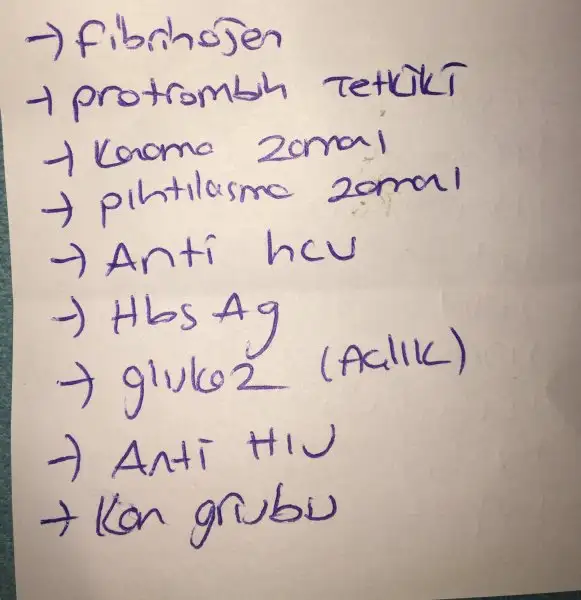 → fibrinojen
→ protrombin Tetkiki
→ Kanama zamanı
→ pıhtılaşma zamanı
→ Anti hcv
→ Hbs Ag
→ glukoz (Açlık)
→ Anti HIV
→ Kan grubu